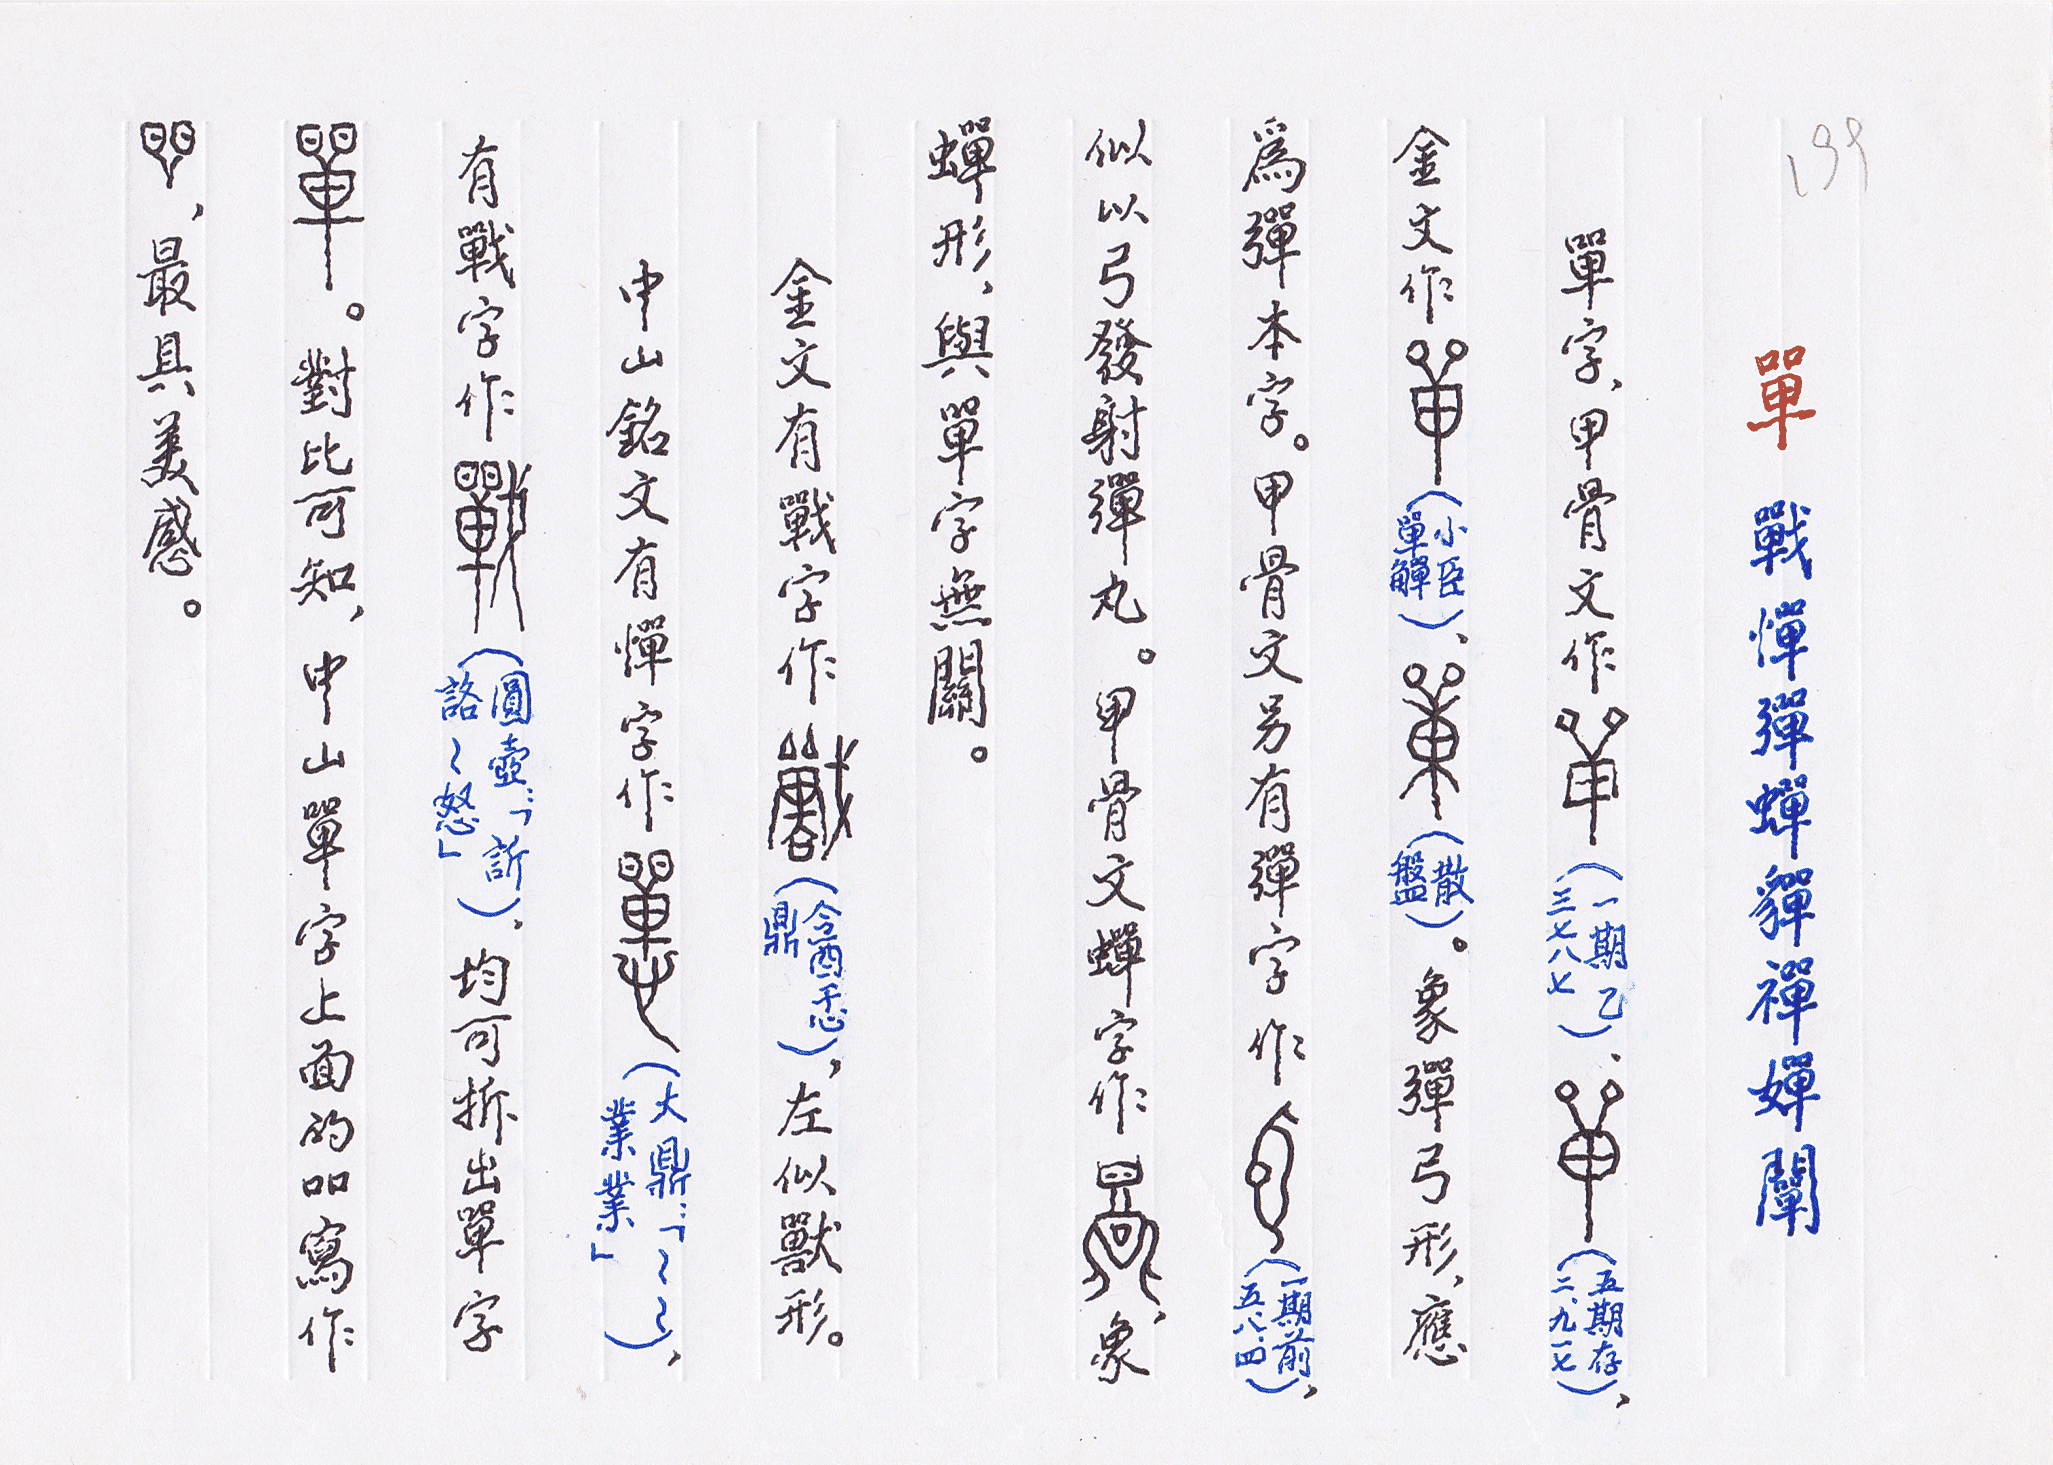 199
單 戰憚彈蟬貚禪嬋闡
單字、甲骨文作(一期乙三七八七)、(五期存二、九一七),
金文作(小臣單觶)、(散盤)。象彈弓形,應
爲彈本字。甲骨文另有彈字作(一期前五、八、四),
似以弓發射彈丸。甲骨文蟬字作,象
蟬形,與單字無關。
金文有戰字作(酓忎鼎),左似獸形。
中山銘文有憚字作(大鼎:「~~業業」),
有戰字作(圓壺:「訢詻~怒」),均可拆出單字
。對比可知,中山單字上面的吅寫作
,最具美感。